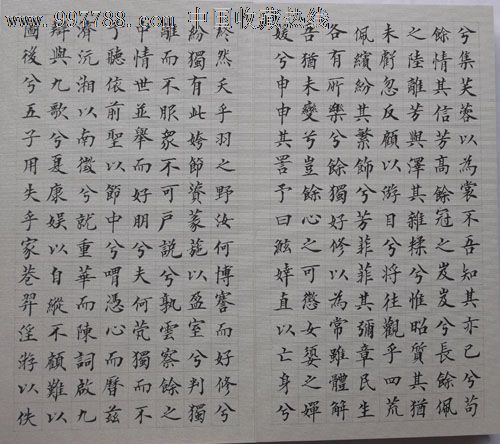 www.997788.com 中国收藏热线
兮集芙蓉以為裳不吾知其亦已兮苟
餘情其信芳高餘冠之岌岌兮長餘佩
之陸離芳與澤其雜糅兮惟昭質其猶
未虧忽反顧以游目兮將往觀乎四荒
佩繽紛其繁飾兮芳菲菲其彌章民生
各有所樂兮餘獨好修以為常雖體解
吾猶未變兮豈餘心之可懲女嬃之嬋
媛兮申申其詈予曰鮌婞直以亡身兮
終然夭乎羽之野汝何博謇而好修兮
紛獨有此姱節資蒙葹以盈室兮判獨
離而不服眾不可戶說兮孰雲察餘之
中情世並舉而好朋兮夫何煢獨而不
予聽依前聖以節中兮喟憑心而歷茲
濟沅湘以南徵兮就重華而陳詞啟九
辯與九歌兮夏康娛以自縱不顧難以
圖後兮五子用失乎家巷羿淫游以佚